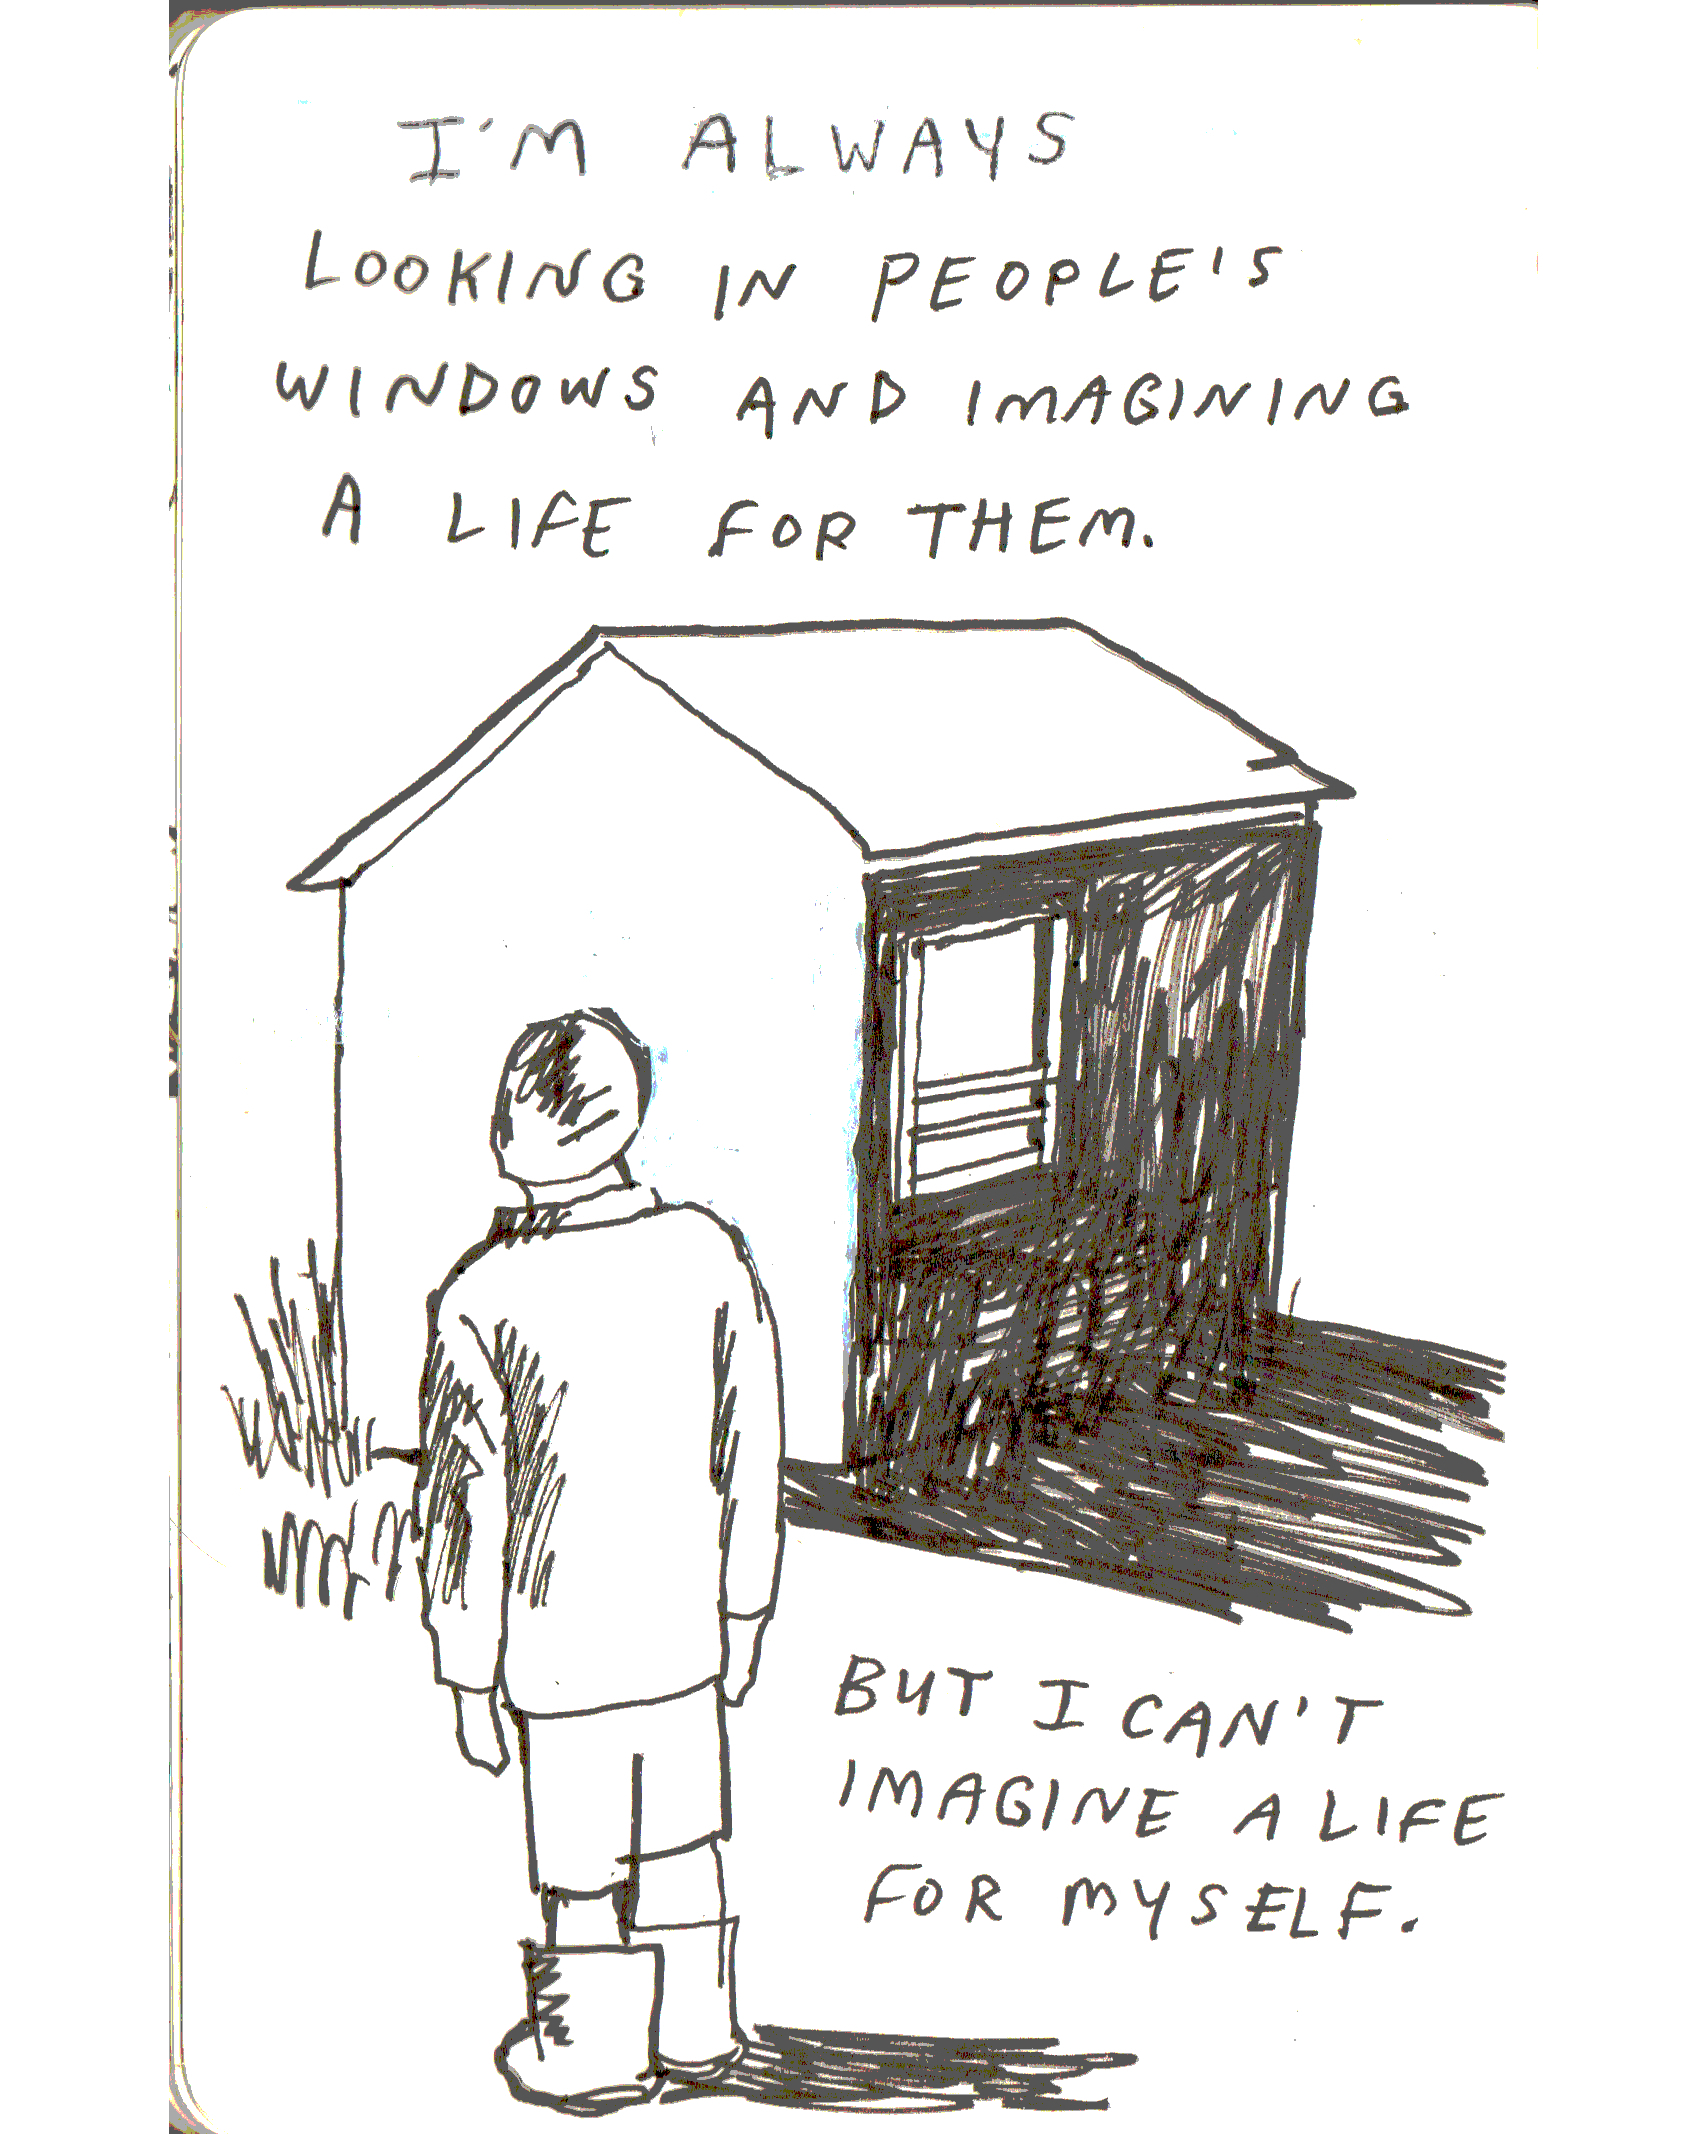 I'M ALWAYS
LOOKING IN PEOPLE'S
WINDOWS AND IMAGINING
A LIFE FOR THEM.
BUT I CAN'T
IMAGINE A LIFE
FOR MYSELF.